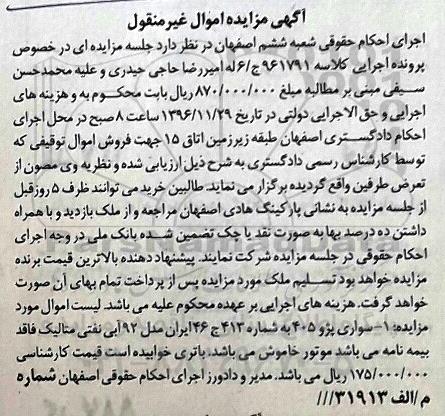 آگهی مزایده اموال غیر منقول
اجرای احکام حقوقی شعبه ششم اصفهان در نظر دارد جلسه مزایده ای در خصوص
پرونده اجرایی کلاسه ۹۶۱۷۹۱ ج/۶ له امیررضا حاجی حیدری و علیه محمدحسن
سیفی مبنی بر مطالبه مبلغ ۸۷۰/۰۰۰/۰۰۰ ریال بابت محکوم به و هزینه های
اجرایی و حق الاجرایی دولتی در تاریخ ۱۳۹۶/۱۱/۲۹ ساعت ۸ صبح در محل اجرای
احکام دادگستری اصفهان طبقه زیرزمین اتاق ۱۵ جهت فروش اموال توقیفی که
توسط کارشناس رسمی دادگستری به شرح ذیل ارزیابی شده و نظریه وی مصون از
تعرض طرفین واقع گردیده برگزار می نماید. طالبین خرید می توانند ظرف ۵ روز قبل
از جلسه مزایده به نشانی پارکینگ هادی اصفهان مراجعه و از ملک بازدید و با همراه
داشتن ده درصد بها به صورت نقد یا چک تضمین شده بانک ملی در وجه اجرای
احکام حقوقی در جلسه مزایده شرکت نمایند. پیشنهاد دهنده بالاترین قیمت برنده
مزایده خواهد بود تسلیم ملک مورد مزایده پس از پرداخت تمام بهای آن صورت
خواهد گرفت. هزینه های اجرایی بر عهده محکوم علیه می باشد. لیست اموال مورد
مزایده: ۱-سواری پژو ۴۰۵ به شماره ۴۱۳ ج ۴۶ ایران مدل ۹۲ آبی نفتی متالیک فاقد
بیمه نامه می باشد موتور خاموش می باشد. باتری خوابیده است قیمت کارشناسی
۱۷۵/۰۰۰/۰۰۰ ریال می باشد. مدیر و دادورز اجرای احکام حقوقی اصفهان شماره
م/الف ۳۱۹۱۳///